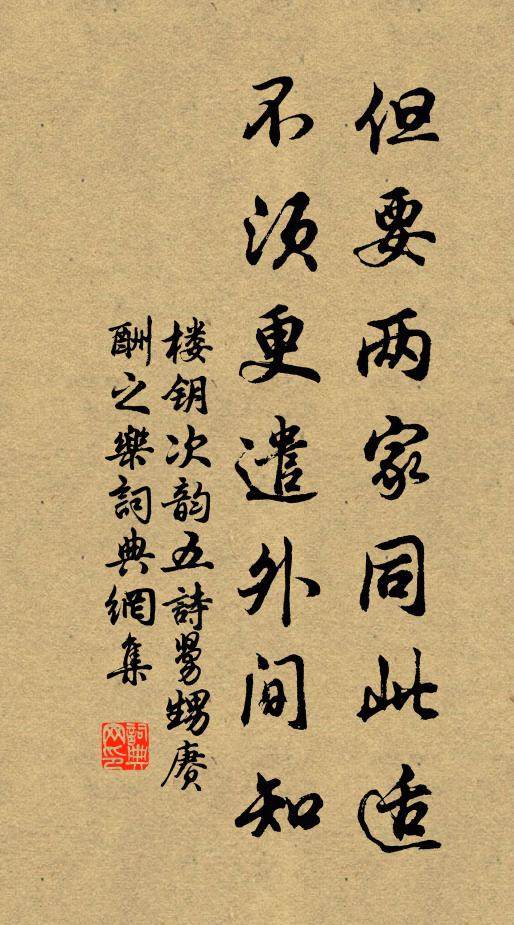 但要两家同此适
不须更遣外间知
楼钥次韵五詩舅甥賡
酬之樂詞典網集
詞典网印